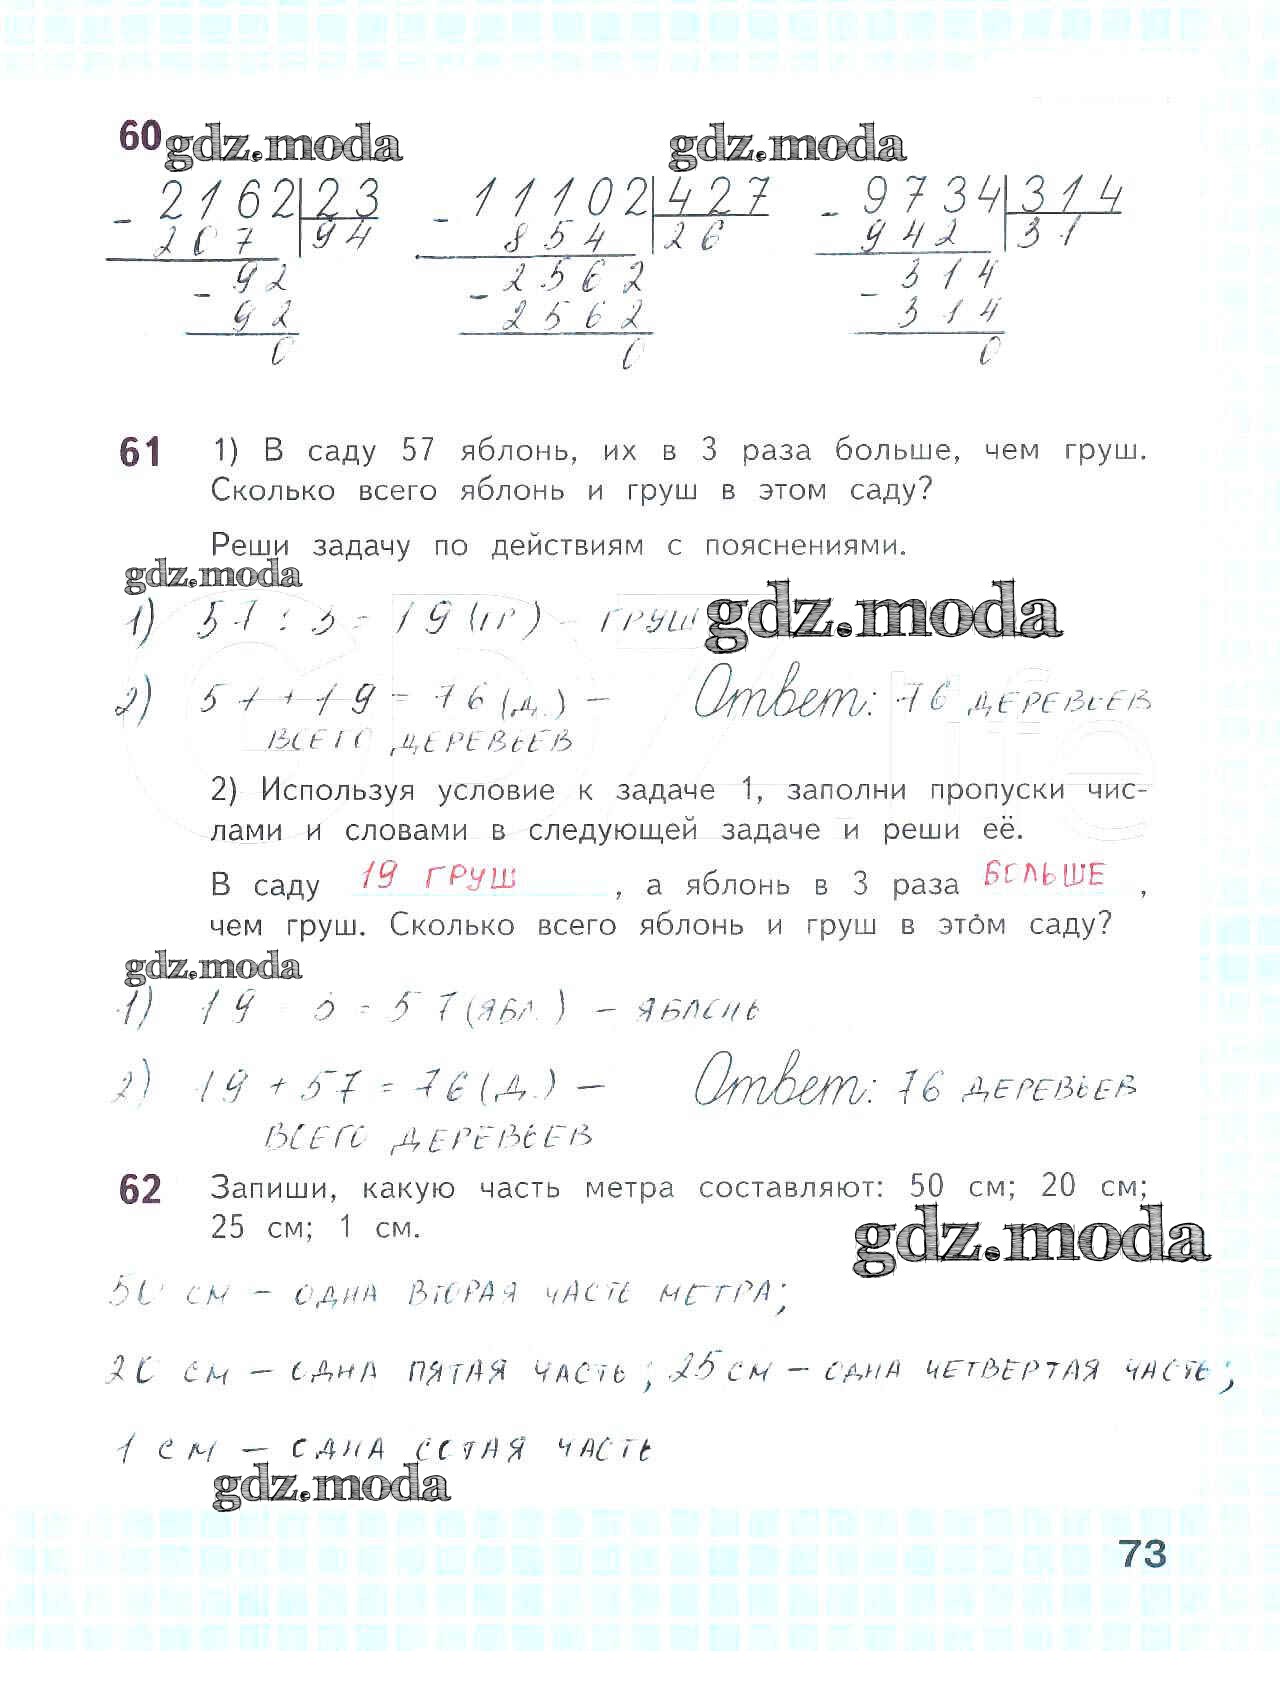 60 gdz.moda gdz.moda
- 2162 23 - 11102 427 - 9734 314
207 94 854 26 942 31
- 92 - 2562 - 314
92 2562 314
0 0 0
61 1) В саду 57 яблонь, их в 3 раза больше, чем груш.
Сколько всего яблонь и груш в этом саду?
Реши задачу по действиям с пояснениями.
gdz.moda
1) 57 : 3 = 19 (гр) - груш gdz.moda
2) 57 + 19 = 76 (д.) - Ответ: 76 деревьев
всего деревьев
2) Используя условие к задаче 1, заполни пропуски чис-
лами и словами в следующей задаче и реши её.
В саду 19 груш , а яблонь в 3 раза больше ,
чем груш. Сколько всего яблонь и груш в этом саду?
gdz.moda
1) 19 · 3 = 57 (ябл.) - яблонь
2) 19 + 57 = 76 (д.) - Ответ: 76 деревьев
всего деревьев
62 Запиши, какую часть метра составляют: 50 см; 20 см;
25 см; 1 см.
gdz.moda
50 см - одна вторая часть метра;
20 см - одна пятая часть; 25 см - одна четвертая часть;
1 см - одна сотая часть
gdz.moda
73